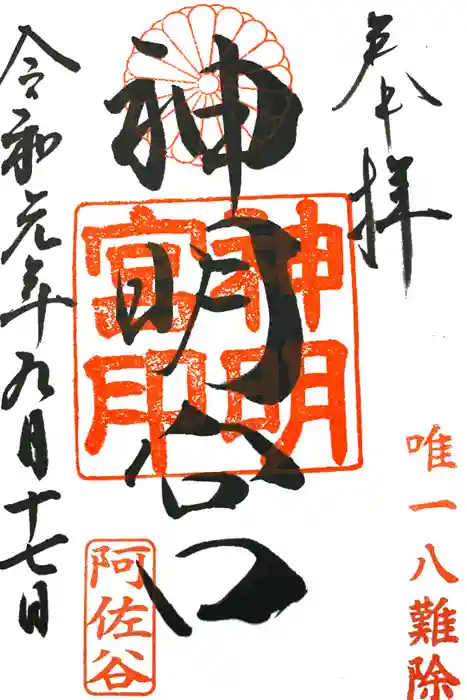 奉拝
唯一八難除
神明宮
神明
宮印
令和元年九月十七日
阿佐谷